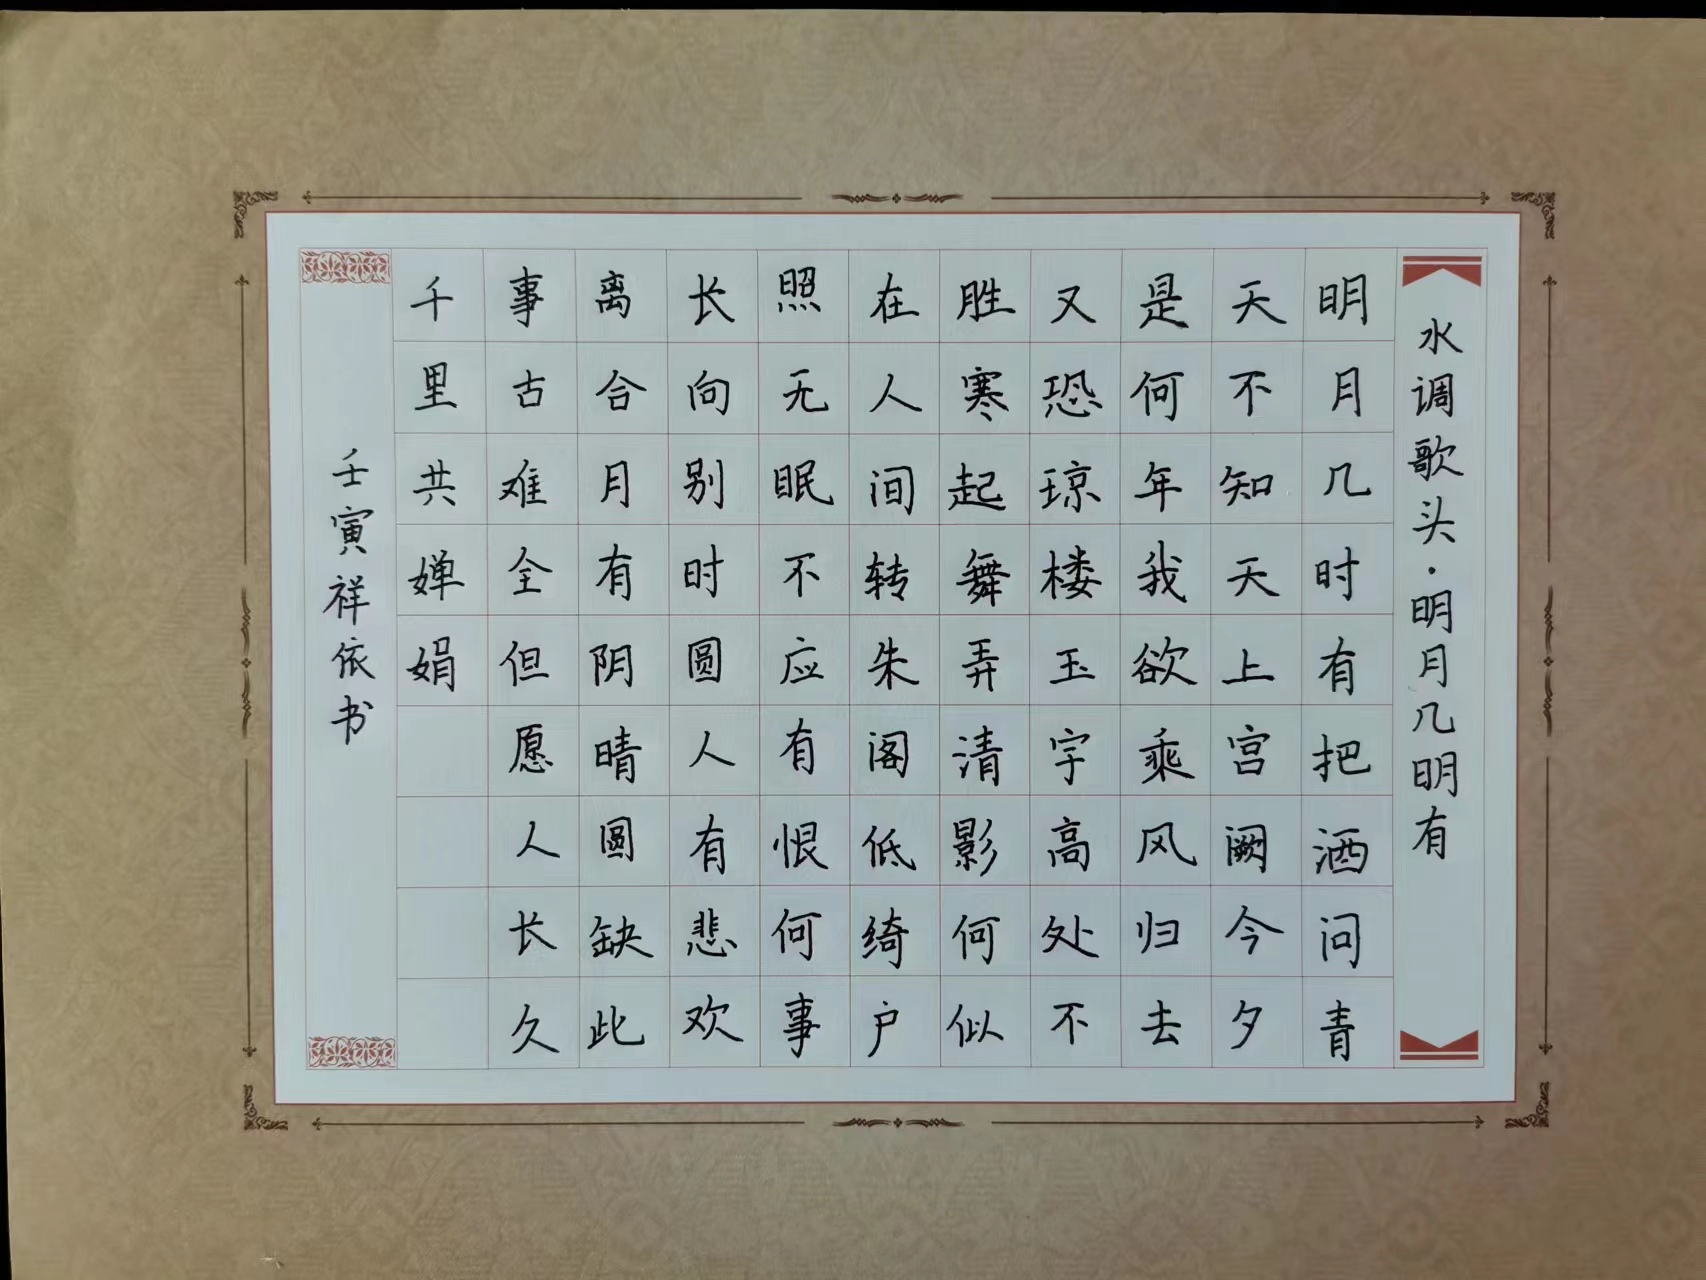 水调歌头·明月几明有
明月几时有把酒问青
天不知天上宫阙今夕
是何年我欲乘风归去
又恐琼楼玉宇高处不
胜寒起舞弄清影何似
在人间转朱阁低绮户
照无眠不应有恨何事
长向别时圆人有悲欢
离合月有阴晴圆缺此
事古难全但愿人长久
千里共婵娟
壬寅祥依书